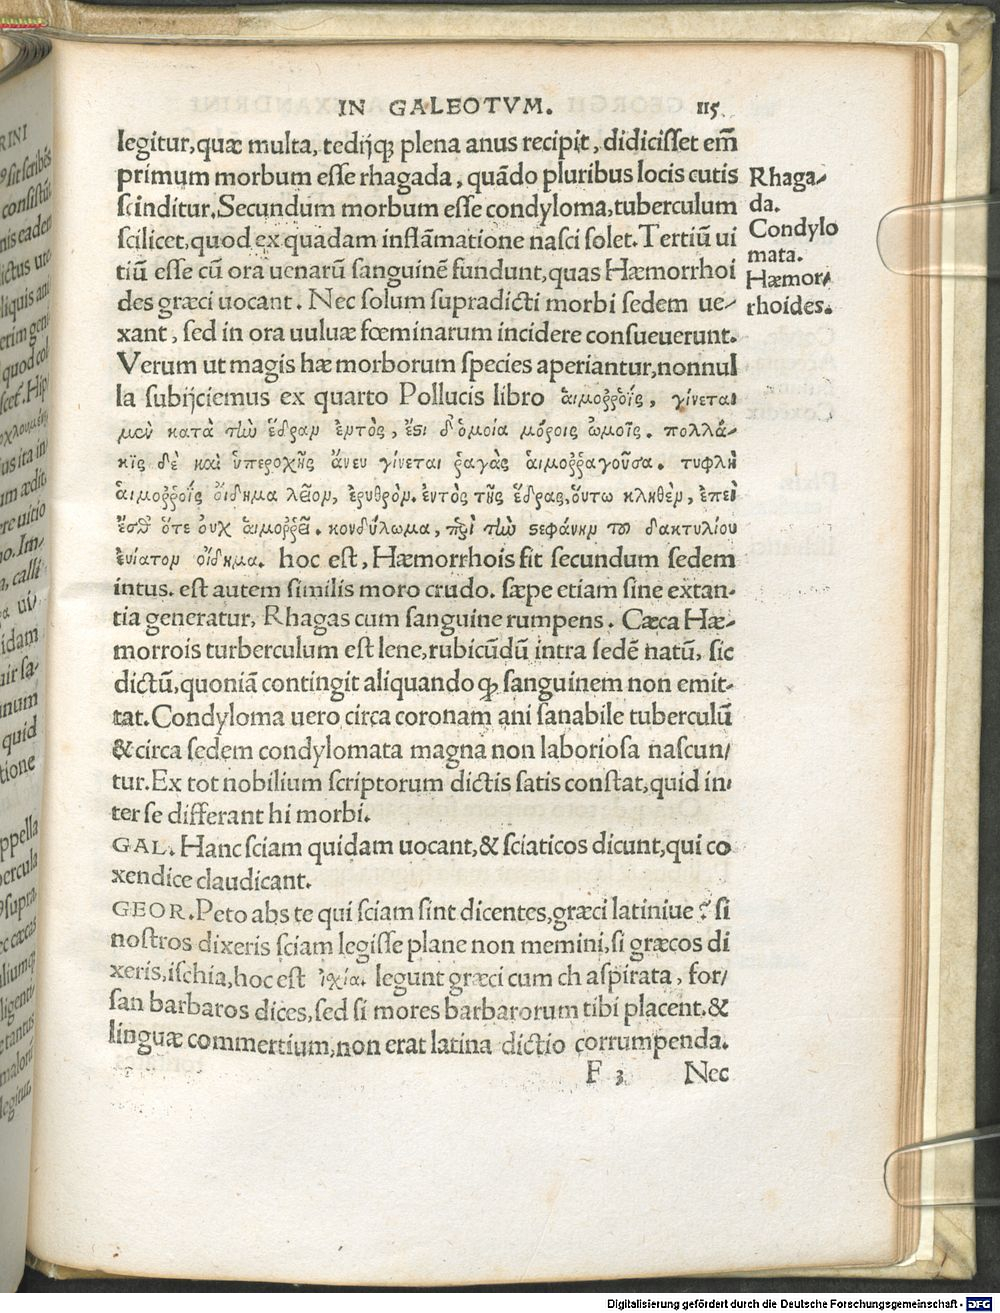 IN GALEOTVM. 115
legitur, quæ multa, tedijq; plena anus recipit, didicisset em̃
primum morbum esse rhagada, quãdo pluribus locis cutis
scinditur. Secundum morbum esse condyloma, tuberculum
scilicet, quod ex quadam inflãmatione nasci solet. Tertiũ ui
tiũ esse cũ ora uenarũ sanguinẽ fundunt, quas Hæmorrhoi
des græci uocant. Nec solum supradicti morbi sedem ue-
xant, sed in ora uuluæ fœminarum incidere consueuerunt.
Verum ut magis hæ morborum species aperiantur, nonnul
la subijciemus ex quarto Pollucis libro αἱμοῤῥοῒς, γίνεται
μὲν κατὰ τὴν ἕδραν ἐντὸς, ἔστι δ' ὁμοία μόροις ὠμοῖς. πολλά-
κις δὲ καὶ ὑπεροχῆς ἄνευ γίνεται ῥαγὰς αἱμοῤῥαγοῦσα. τυφλὴ
αἱμοῤῥοῒς οἴδημα λεῖον, ἐρυθρὸν. ἐντὸς τῆς ἕδρας, οὕτω κληθὲν, ἐπεὶ
ἔσθ' ὅτε οὐχ αἱμοῤῥεῖ. κονδύλωμα, περὶ τὴν στεφάνην τοῦ δακτυλίου
ἐνίατον οἴδημα. hoc est, Hæmorrhois fit secundum sedem
intus. est autem similis moro crudo. sæpe etiam sine extan-
tia generatur, Rhagas cum sanguine rumpens. Cæca Hæ-
morrois turberculum est lene, rubicũdũ intra sedẽ natũ, sic
dictũ, quoniã contingit aliquando q; sanguinem non emit-
tat. Condyloma uero circa coronam ani sanabile tuberculũ
& circa sedem condylomata magna non laboriosa nascun-
tur. Ex tot nobilium scriptorum dictis satis constat, quid in-
ter se differant hi morbi.
GAL. Hanc sciam quidam uocant, & sciaticos dicunt, qui co
xendice claudicant.
GEOR. Peto abs te qui sciam sint dicentes, græci latiniue? si
nostros dixeris sciam legisse plane non memini, si græcos di
xeris, ischia, hoc est ἰχία. legunt græci cum ch aspirata, for-
san barbaros dices, sed si mores barbarorum tibi placent, &
linguæ commertium, non erat latina dictio corrumpenda.
F 3 Nec
Rhaga-
da.
Condylo
mata.
Hæmor-
rhoides.
Digitalisierung gefördert durch die Deutsche Forschungsgemeinschaft - DFG